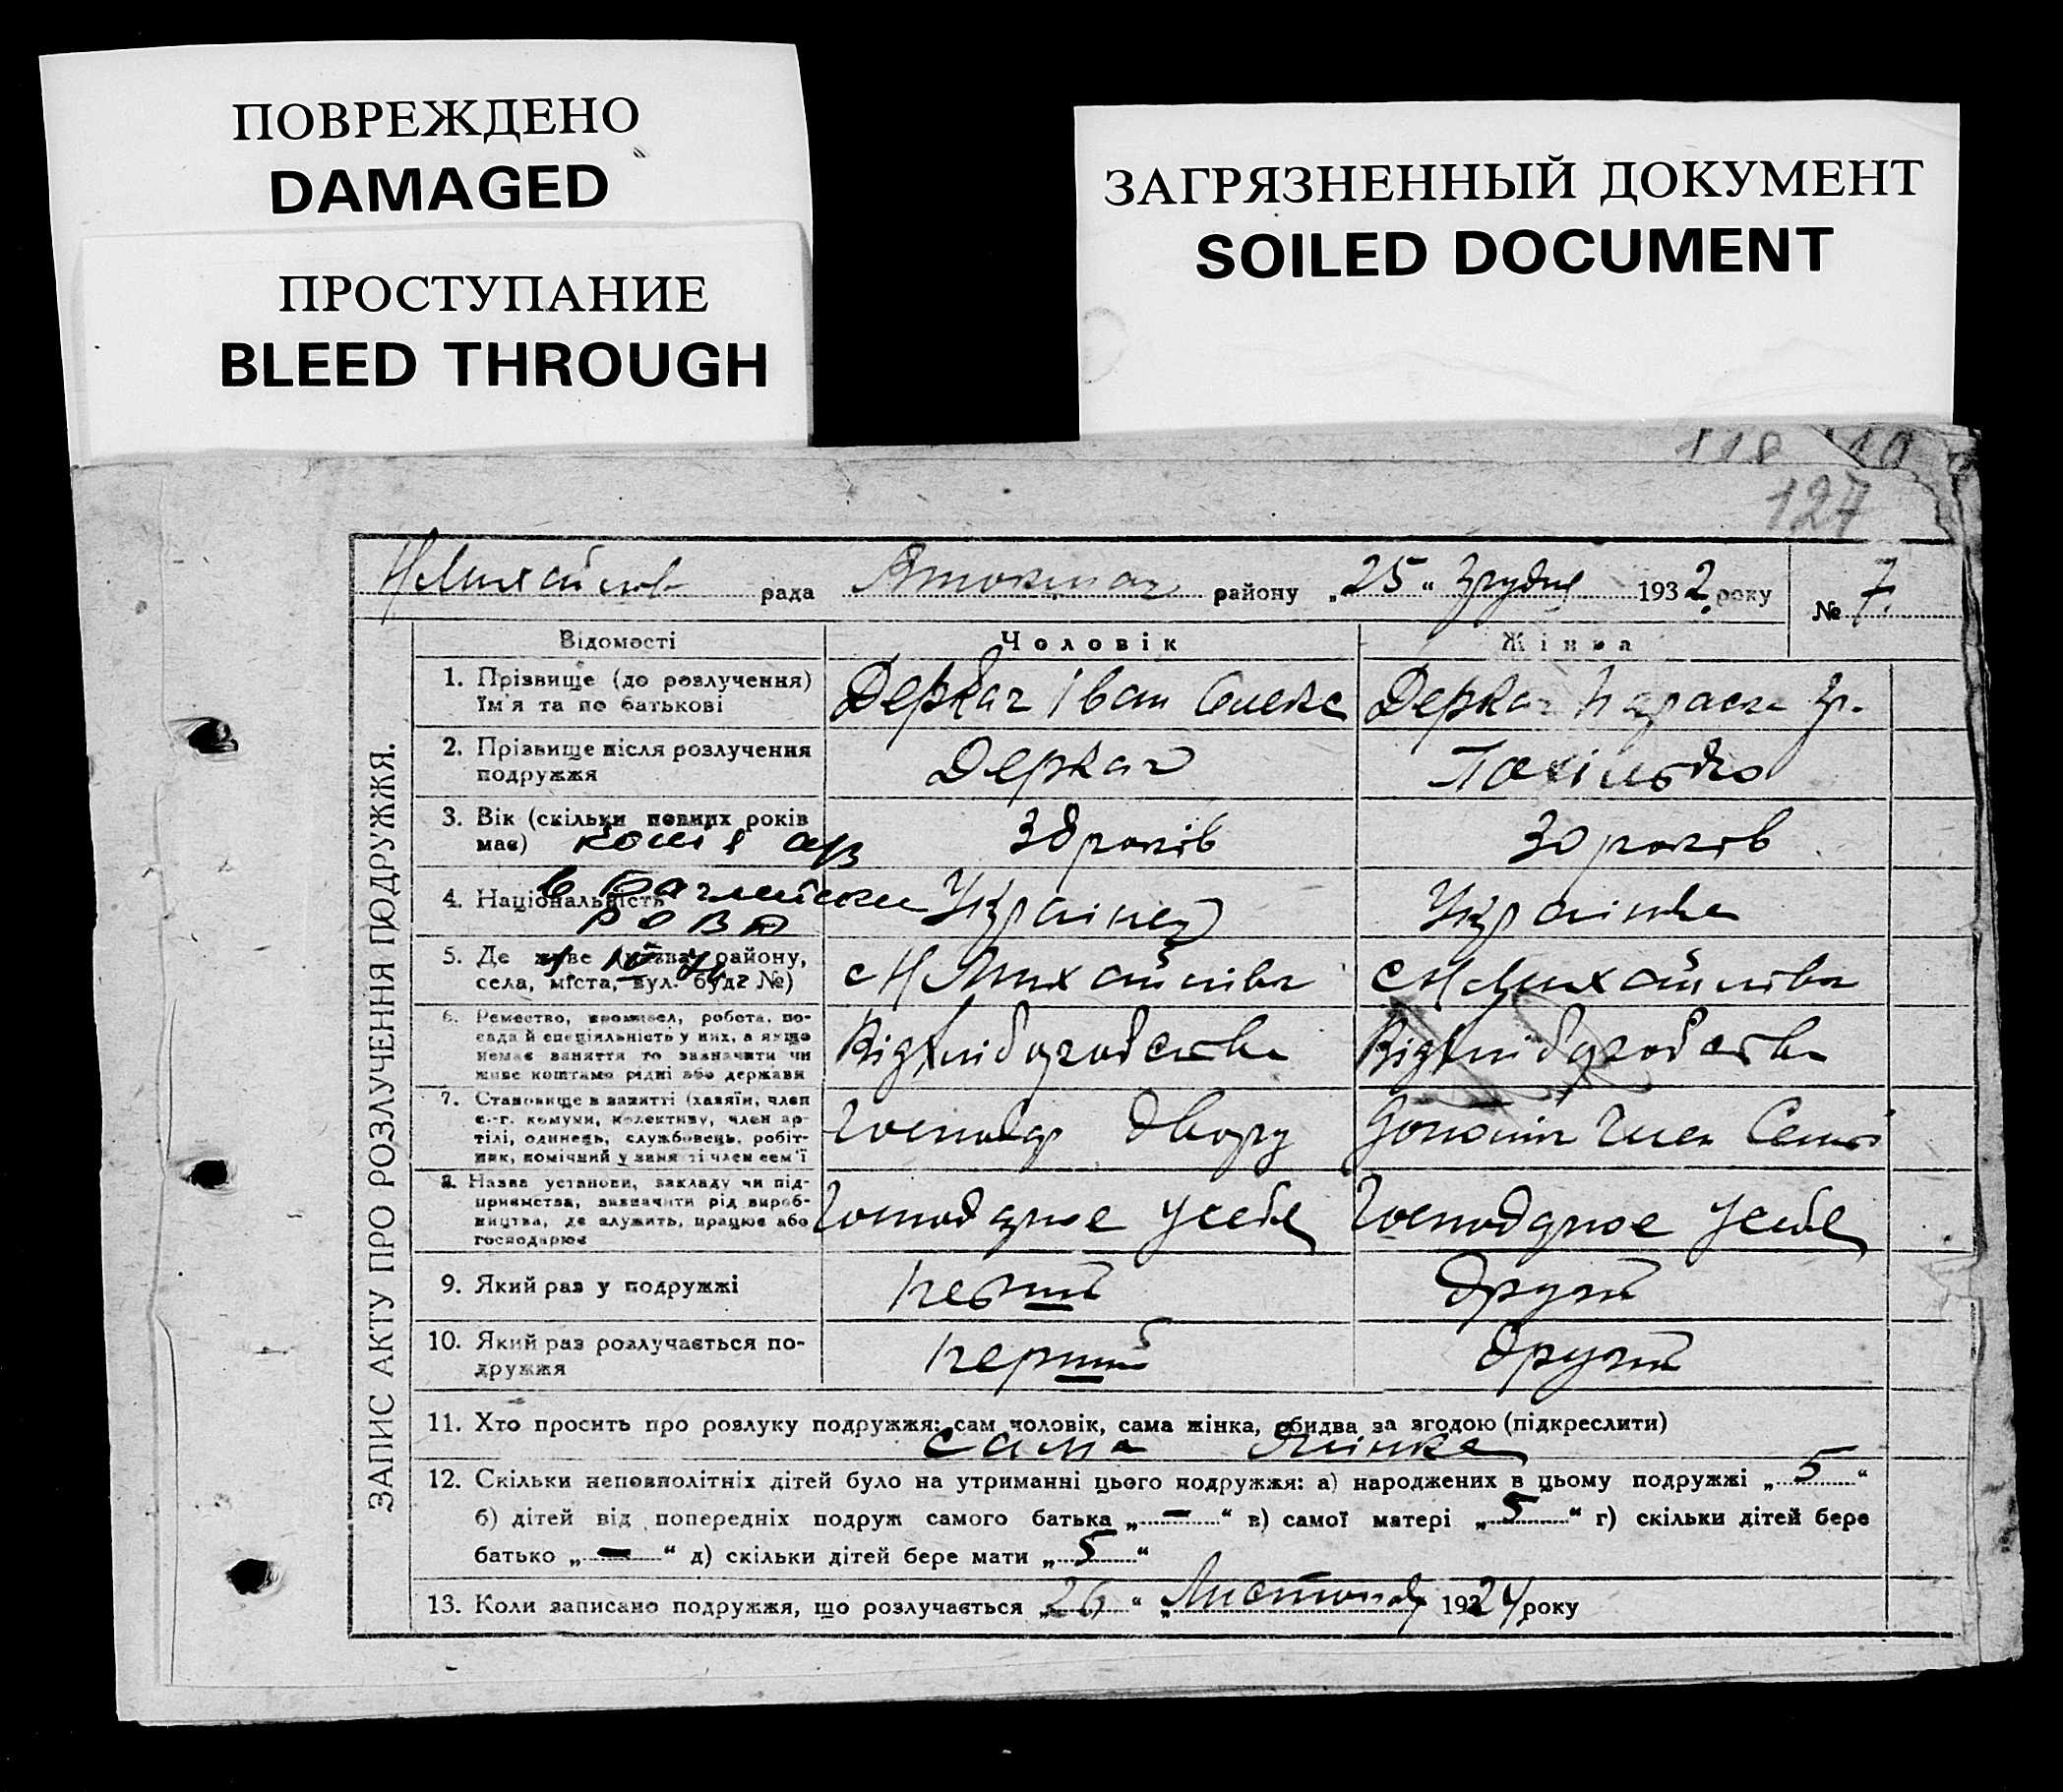 ПОВРЕЖДЕНО
DAMAGED
ПРОСТУПАНИЕ
BLEED THROUGH
ЗАГРЯЗНЕННЫЙ ДОКУМЕНТ
SOILED DOCUMENT
127
рада району „25“ Грудня 1932 року № 7.
ЗАПИС АКТУ ПРО РОЗЛУЧЕННЯ ПОДРУЖЖЯ.
Відомості Чоловік Жінка
1. Прізвище (до розлучення) Ім'я та по батькові
Деркач Іван Олекс Деркач Параска Гр.
2. Прізвище після розлучення подружжя
Деркач
3. Вік (скільки повних років має)
38 років 30 років
копія
4. Національність
Українец Українка
5. Де живе (назва району, села, міста, вул. буд. №)
с Н Михайлівка с Н Михайлівка
6. Ремество, промисел, робота, посада й спеціяльність у них, а якщо
немає заняття то зазначити чи
живе коштами рідні або держави
7. Становище в занятті (хазяїн, член
с.-г. комуни, колективу, член артілі, одинець, службовець, робітник, помічний у занятті член сем'ї
Господар двору член Семї
8. Назва установи, закладу чи підприємства, визначити рід виробництва, де служить, працює або
господарює
Господарює у себе Господарює у себе
9. Який раз у подружжі
первий другий
10. Який раз розлучається подружжя
перший другий
11. Хто просить про розлуку подружжя: сам чоловік, сама жінка, обидва за згодою (підкреслити)
сама жінка
12. Скільки неповнолітніх дітей було на утриманні цього подружжя: а) народжених в цьому подружжі „5“
б) дітей від попередніх подруж самого батька „—“ в) самої матері „5“ г) скільки дітей бере
батько „—“ д) скільки дітей бере мати „5“
13. Коли записано подружжя, що розлучається „26“ „Листопад 1924 року